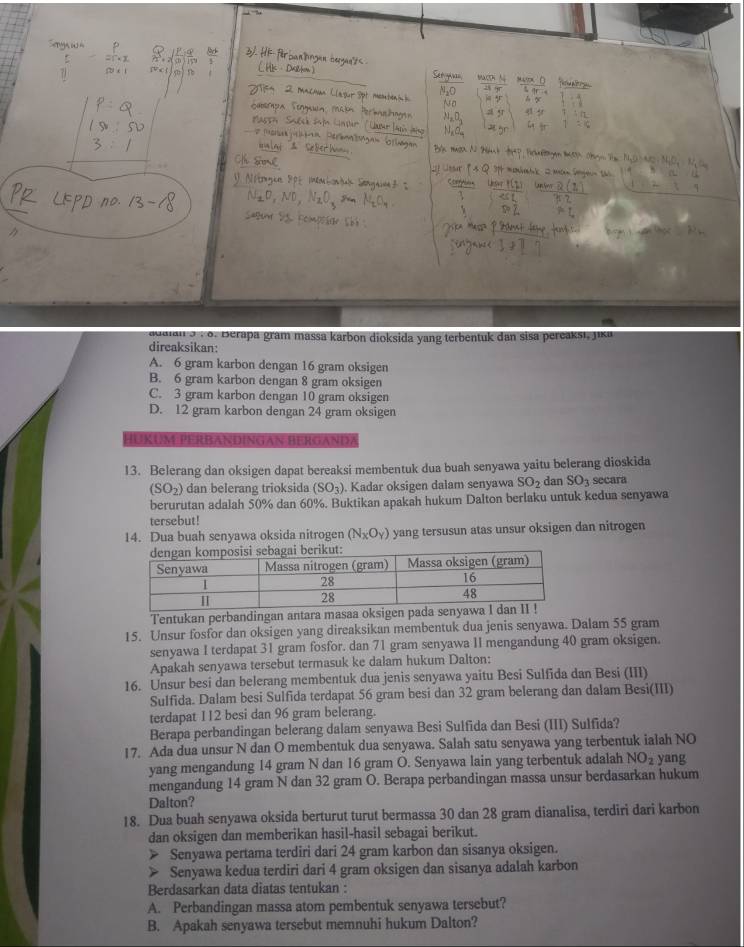 Senyawa P Q P : Q
I 25 x 2 75 x 2 50 150 3
II 50 x 1 50 x 1 50 50 1
P : Q
150 : 50
3 : 1
PR LKPD no. 13-18
3/. Hk. Perbandingan berganda
(Hk. Dalton)
Jika 2 macam Unsur dpt membentuk
beberapa Senyawa, maka Perbandingan
massa Salah satu Unsur (Unsur lain tetap
→ menunjukkan Perbandingan bilangan
bulat & Sederhana
Cth Soal
1) Nitrogen dpt membentuk Senyawa2 :
N₂O, NO, N₂O₃ dan N₂O₄.
dgn komposisi sbb :
Senyawa massa N massa O Perbandingan
N₂O 28 gr
NO
N₂O₃ 28 gr 48 gr 7 : 12
N₂O₄ 28 gr 64 gr 7 : 16
2) Unsur P & Q dpt membentuk 2 macam Senyawa sbb
Senyawa Unsur P(%) Unsur Q (%)
Jika massa P
Senyawa I & II ?
adalah 3 : 8. Berapa gram massa karbon dioksida yang terbentuk dan sisa pereaksi, jika
direaksikan:
A. 6 gram karbon dengan 16 gram oksigen
B. 6 gram karbon dengan 8 gram oksigen
C. 3 gram karbon dengan 10 gram oksigen
D. 12 gram karbon dengan 24 gram oksigen
HUKUM PERBANDINGAN BERGANDA
13. Belerang dan oksigen dapat bereaksi membentuk dua buah senyawa yaitu belerang dioskida
(SO₂) dan belerang trioksida (SO₃). Kadar oksigen dalam senyawa SO₂ dan SO₃ secara
berurutan adalah 50% dan 60%. Buktikan apakah hukum Dalton berlaku untuk kedua senyawa
tersebut!
14. Dua buah senyawa oksida nitrogen (NₓOᵧ) yang tersusun atas unsur oksigen dan nitrogen
dengan komposisi sebagai berikut:
Senyawa Massa nitrogen (gram) Massa oksigen (gram)
I 28 16
II 28 48
Tentukan perbandingan antara masaa oksigen pada senyawa I dan II !
15. Unsur fosfor dan oksigen yang direaksikan membentuk dua jenis senyawa. Dalam 55 gram
senyawa I terdapat 31 gram fosfor. dan 71 gram senyawa II mengandung 40 gram oksigen.
Apakah senyawa tersebut termasuk ke dalam hukum Dalton:
16. Unsur besi dan belerang membentuk dua jenis senyawa yaitu Besi Sulfida dan Besi (III)
Sulfida. Dalam besi Sulfida terdapat 56 gram besi dan 32 gram belerang dan dalam Besi(III)
terdapat 112 besi dan 96 gram belerang.
Berapa perbandingan belerang dalam senyawa Besi Sulfida dan Besi (III) Sulfida?
17. Ada dua unsur N dan O membentuk dua senyawa. Salah satu senyawa yang terbentuk ialah NO
yang mengandung 14 gram N dan 16 gram O. Senyawa lain yang terbentuk adalah NO₂ yang
mengandung 14 gram N dan 32 gram O. Berapa perbandingan massa unsur berdasarkan hukum
Dalton?
18. Dua buah senyawa oksida berturut turut bermassa 30 dan 28 gram dianalisa, terdiri dari karbon
dan oksigen dan memberikan hasil-hasil sebagai berikut.
➢ Senyawa pertama terdiri dari 24 gram karbon dan sisanya oksigen.
➢ Senyawa kedua terdiri dari 4 gram oksigen dan sisanya adalah karbon
Berdasarkan data diatas tentukan :
A. Perbandingan massa atom pembentuk senyawa tersebut?
B. Apakah senyawa tersebut memnuhi hukum Dalton?